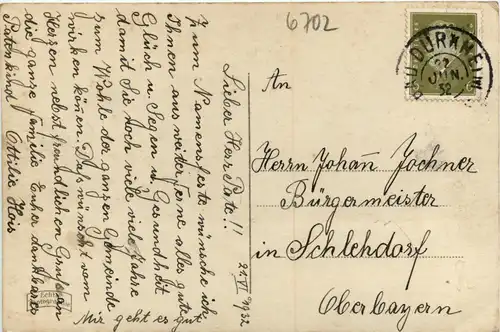 6702
BAD DÜRKHEIM
22
JUN.
32
An
Herrn Johann Jochner
Bürgermeister
in Schlehdorf
Oberbayern
21. VI. 1932
Lieber Herr Pate!!
Zum Namensfeste wünsche ich
Ihnen aus weiter Ferne alles gute
Glück u. Segen u. Gesundheit
damit Sie noch viele viele Jahre
zum Wohle der ganzen Gemeinde
wirken könen. Das wünscht vom
Herzen nebst freundlichen Grüß an
die ganze Familie Euher dankbares
Patenkind Ottilie Hois
Mir geht es gut
Echte